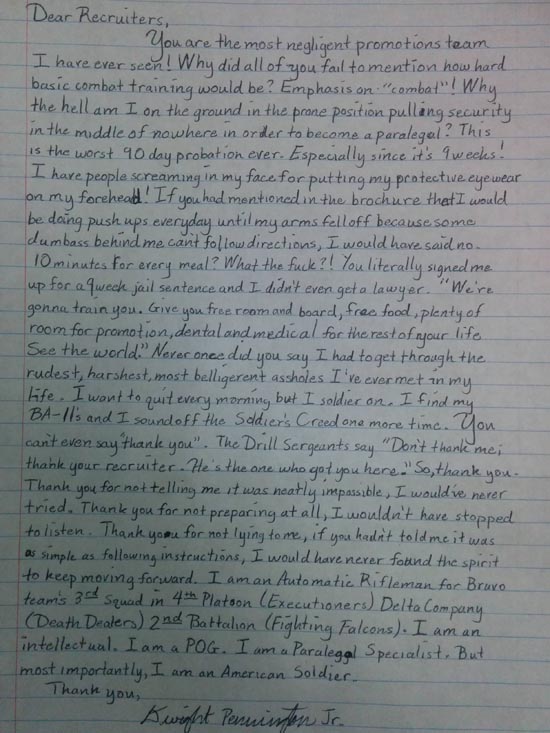 Dear Recruiters,
You are the most negligent promotions team
I have ever seen! Why did all of you fail to mention how hard
basic combat training would be? Emphasis on "combat"! Why
the hell am I on the ground in the prone position pulling security
in the middle of nowhere in order to become a paralegal? This
is the worst 90 day probation ever. Especially since it's 9 weeks!
I have people screaming in my face for putting my protective eyewear
on my forehead! If you had mentioned in the brochure that I would
be doing push ups everyday until my arms fell off because some
dumbass behind me can't follow directions, I would have said no.
10 minutes for every meal? What the fuck?! You literally signed me
up for a 9 week jail sentence and I didn't even get a lawyer. "We're
gonna train you. Give you free room and board, free food, plenty of
room for promotion, dental and medical for the rest of your life
See the world." Never once did you say I had to get through the
rudest, harshest, most belligerent assholes I've ever met in my
life. I want to quit every morning but I soldier on. I find my
BA-11's and I sound off the Soldier's Creed one more time. You
can't even say "thank you". The Drill Sergeants say "Don't thank me;
thank your recruiter. He's the one who got you here." So, thank you.
Thank you for not telling me it was neatly impossible, I would've never
tried. Thank you for not preparing at all, I wouldn't have stopped
to listen. Thank you for not lying to me, if you hadn't told me it was
as simple as following instructions, I would have never found the spirit
to keep moving forward. I am an Automatic Rifleman for Bravo
team's 3rd Squad in 4th Platoon (Executioners) Delta Company
(Death Dealers) 2nd Battalion (Fighting Falcons). I am an
intellectual. I am a POG. I am a Paralegal Specialist. But
most importantly, I am an American Soldier.
Thank you,
Kwight Pennington Jr.